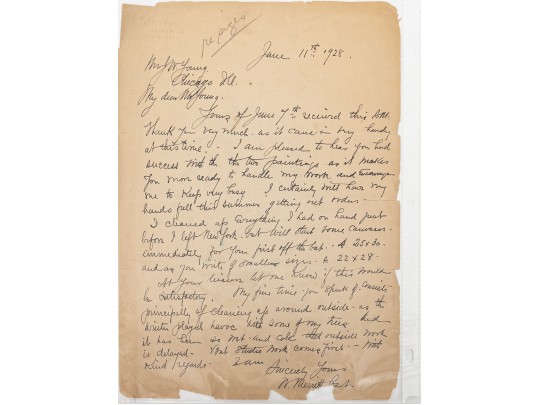 re sizes
June 11th 1928.
Mr J W Young
Chicago Ill.
My dear Mr Young.
Yours of June 7th received this A.M.
Thank you very much as it came in very handy
at this time. - I am pleased to hear you had
success with the two paintings as it makes
you more ready to handle my work, and encourages
me to keep very busy I certainly will have my
hands full this summer getting out orders -
I cleaned up everything I had on hand just
before I left New York. but will start some canvases
immediately for you first off the bat. - A 25x30.
and as you write of smaller sizes - A 22 x 28 -
At your leisure let me know if this would
be satisfactory. My fine time you speak of consists
principally of cleaning up around outside - as the
winter played havoc with some of my trees and
it has been so wet and cold that outside work
is delayed - but studio work comes first - With
kind regards - I am
Sincerely Yours
W. Merritt Post -